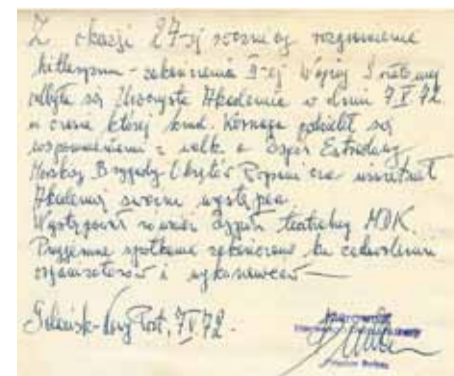 Z okazji 27-ej rocznicy rozgromienia
hitleryzmu - zakończenia II-ej Wojny Światowej
odbyła się Uroczysta Akademia w dniu 7.V.72
w czasie której kmd. podzielił się
wspomnieniami z walk o
Morskiej Brygady Okrętów oraz uświetnił
Akademię swoim występem
Wystąpił również Zespół teatralny MDK.
Przyjemne spotkanie zakończono ku zadowoleniu
organizatorów i wykonawców —
Gdańsk-Nowy Port, 7 V 72.
Kierownik